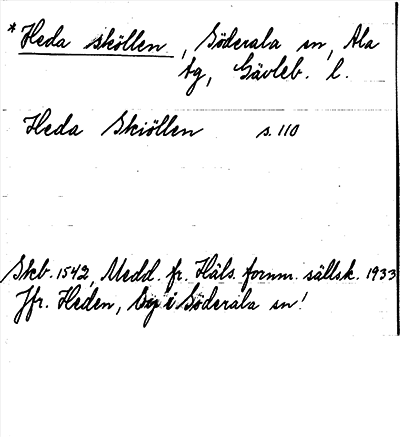 *Heda sköllen, Söderala sn, Ala
tg, Gävleb. l.
Heda Skiöllen s. 110
Skb. 1542, Medd. fr. Häls. fornm. sällsk. 1933
Jfr. Heden, by i Söderala sn!